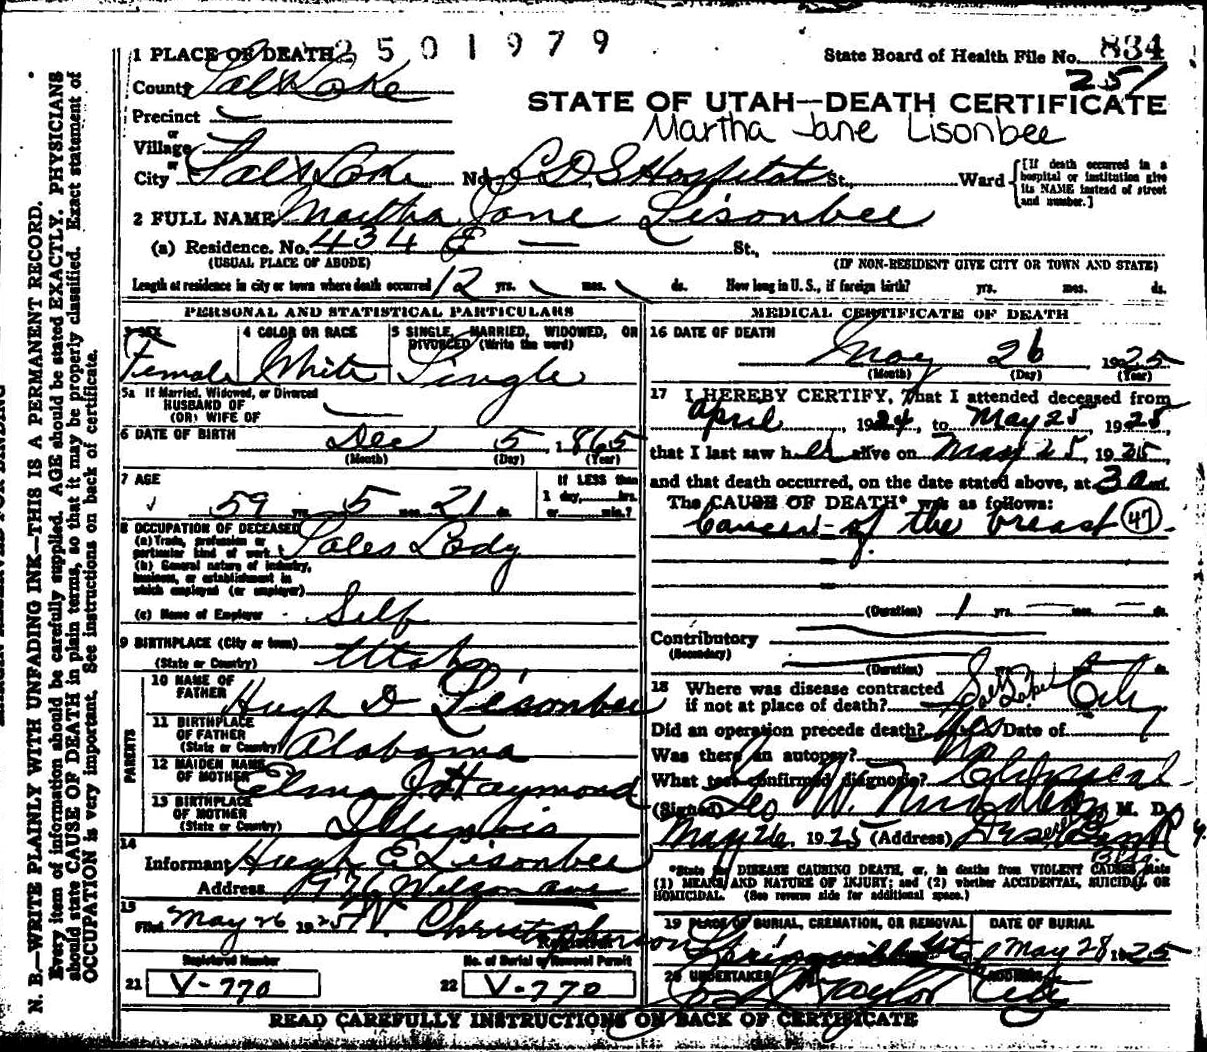 1 PLACE OF DEATH 2501979 State Board of Health File No. 834
County Salt Lake 251
STATE OF UTAH—DEATH CERTIFICATE
Precinct
Martha Jane Lisonbee
or
Village
or
City Salt Lake No. L D S Hospital St., Ward [If death occurred in a hospital or institution give its NAME instead of street and number.]
2 FULL NAME Martha Jane Lisonbee
(a) Residence. No. 434 E — St.,
(USUAL PLACE OF ABODE) (IF NON-RESIDENT GIVE CITY OR TOWN AND STATE)
Length of residence in city or town where death occurred 12 yrs. mos. ds. How long in U. S., if foreign birth? yrs. mos. ds.
PERSONAL AND STATISTICAL PARTICULARS
3 SEX 4 COLOR OR RACE 5 SINGLE, MARRIED, WIDOWED, OR DIVORCED (Write the word)
Female White Single
5a If Married, Widowed, or Divorced
HUSBAND OF
(OR) WIFE OF
6 DATE OF BIRTH Dec 5, 1865
(Month) (Day) (Year)
7 AGE If LESS than
59 yrs. 5 mos. 21 ds. 1 day, hrs.
or min.?
8 OCCUPATION OF DECEASED
(a) Trade, profession or particular kind of work Sales Lady
(b) General nature of industry,
business, or establishment in
which employed (or employer)
(c) Name of Employer Self
9 BIRTHPLACE (City or town)
(State or Country) Utah
PARENTS
10 NAME OF FATHER Hugh D Lisonbee
11 BIRTHPLACE OF FATHER
(State or Country) Alabama
12 MAIDEN NAME OF MOTHER Elma J Haymond
13 BIRTHPLACE OF MOTHER
(State or Country) Illinois
14
Informant Hugh E Lisonbee
Address Wilson ave
15
Filed May 26 1925 W. Christopherson
Registrar
Registered Number No. of Burial or Removal Permit
21 V-770 22 V-770
MEDICAL CERTIFICATE OF DEATH
16 DATE OF DEATH
May 26 1925
(Month) (Day) (Year)
17 I HEREBY CERTIFY, That I attended deceased from
April, 1924, to May 25, 1925,
that I last saw her alive on May 25, 1925,
and that death occurred, on the date stated above, at 3 a m.
The CAUSE OF DEATH* was as follows:
Cancer of the breast 47
(Duration) 1 yrs. — mos. — ds.
Contributory
(Secondary)
(Duration) yrs. ds.
18 Where was disease contracted
if not at place of death? Salt Lake City
Did an operation precede death? Yes Date of ?
Was there an autopsy? No
What test confirmed diagnosis? Clinical
(Signed) Leo W. M. D.
May 26, 1925 (Address) Deseret Bank Bldg.
*State the DISEASE CAUSING DEATH, or, in deaths from VIOLENT CAUSES, state
(1) MEANS AND NATURE OF INJURY; and (2) whether ACCIDENTAL, SUICIDAL OR
HOMICIDAL. (See reverse side for additional space.)
19 PLACE OF BURIAL, CREMATION, OR REMOVAL DATE OF BURIAL
Springville Ut May 28 1925
20 UNDERTAKER ADDRESS
Taylor City
READ CAREFULLY INSTRUCTIONS ON BACK OF CERTIFICATE
N. B.—WRITE PLAINLY WITH UNFADING INK—THIS IS A PERMANENT RECORD.
Every item of information should be carefully supplied. AGE should be stated EXACTLY. PHYSICIANS
should state CAUSE OF DEATH in plain terms, so that it may be properly classified. Exact statement of
OCCUPATION is very important. See instructions on back of certificate.